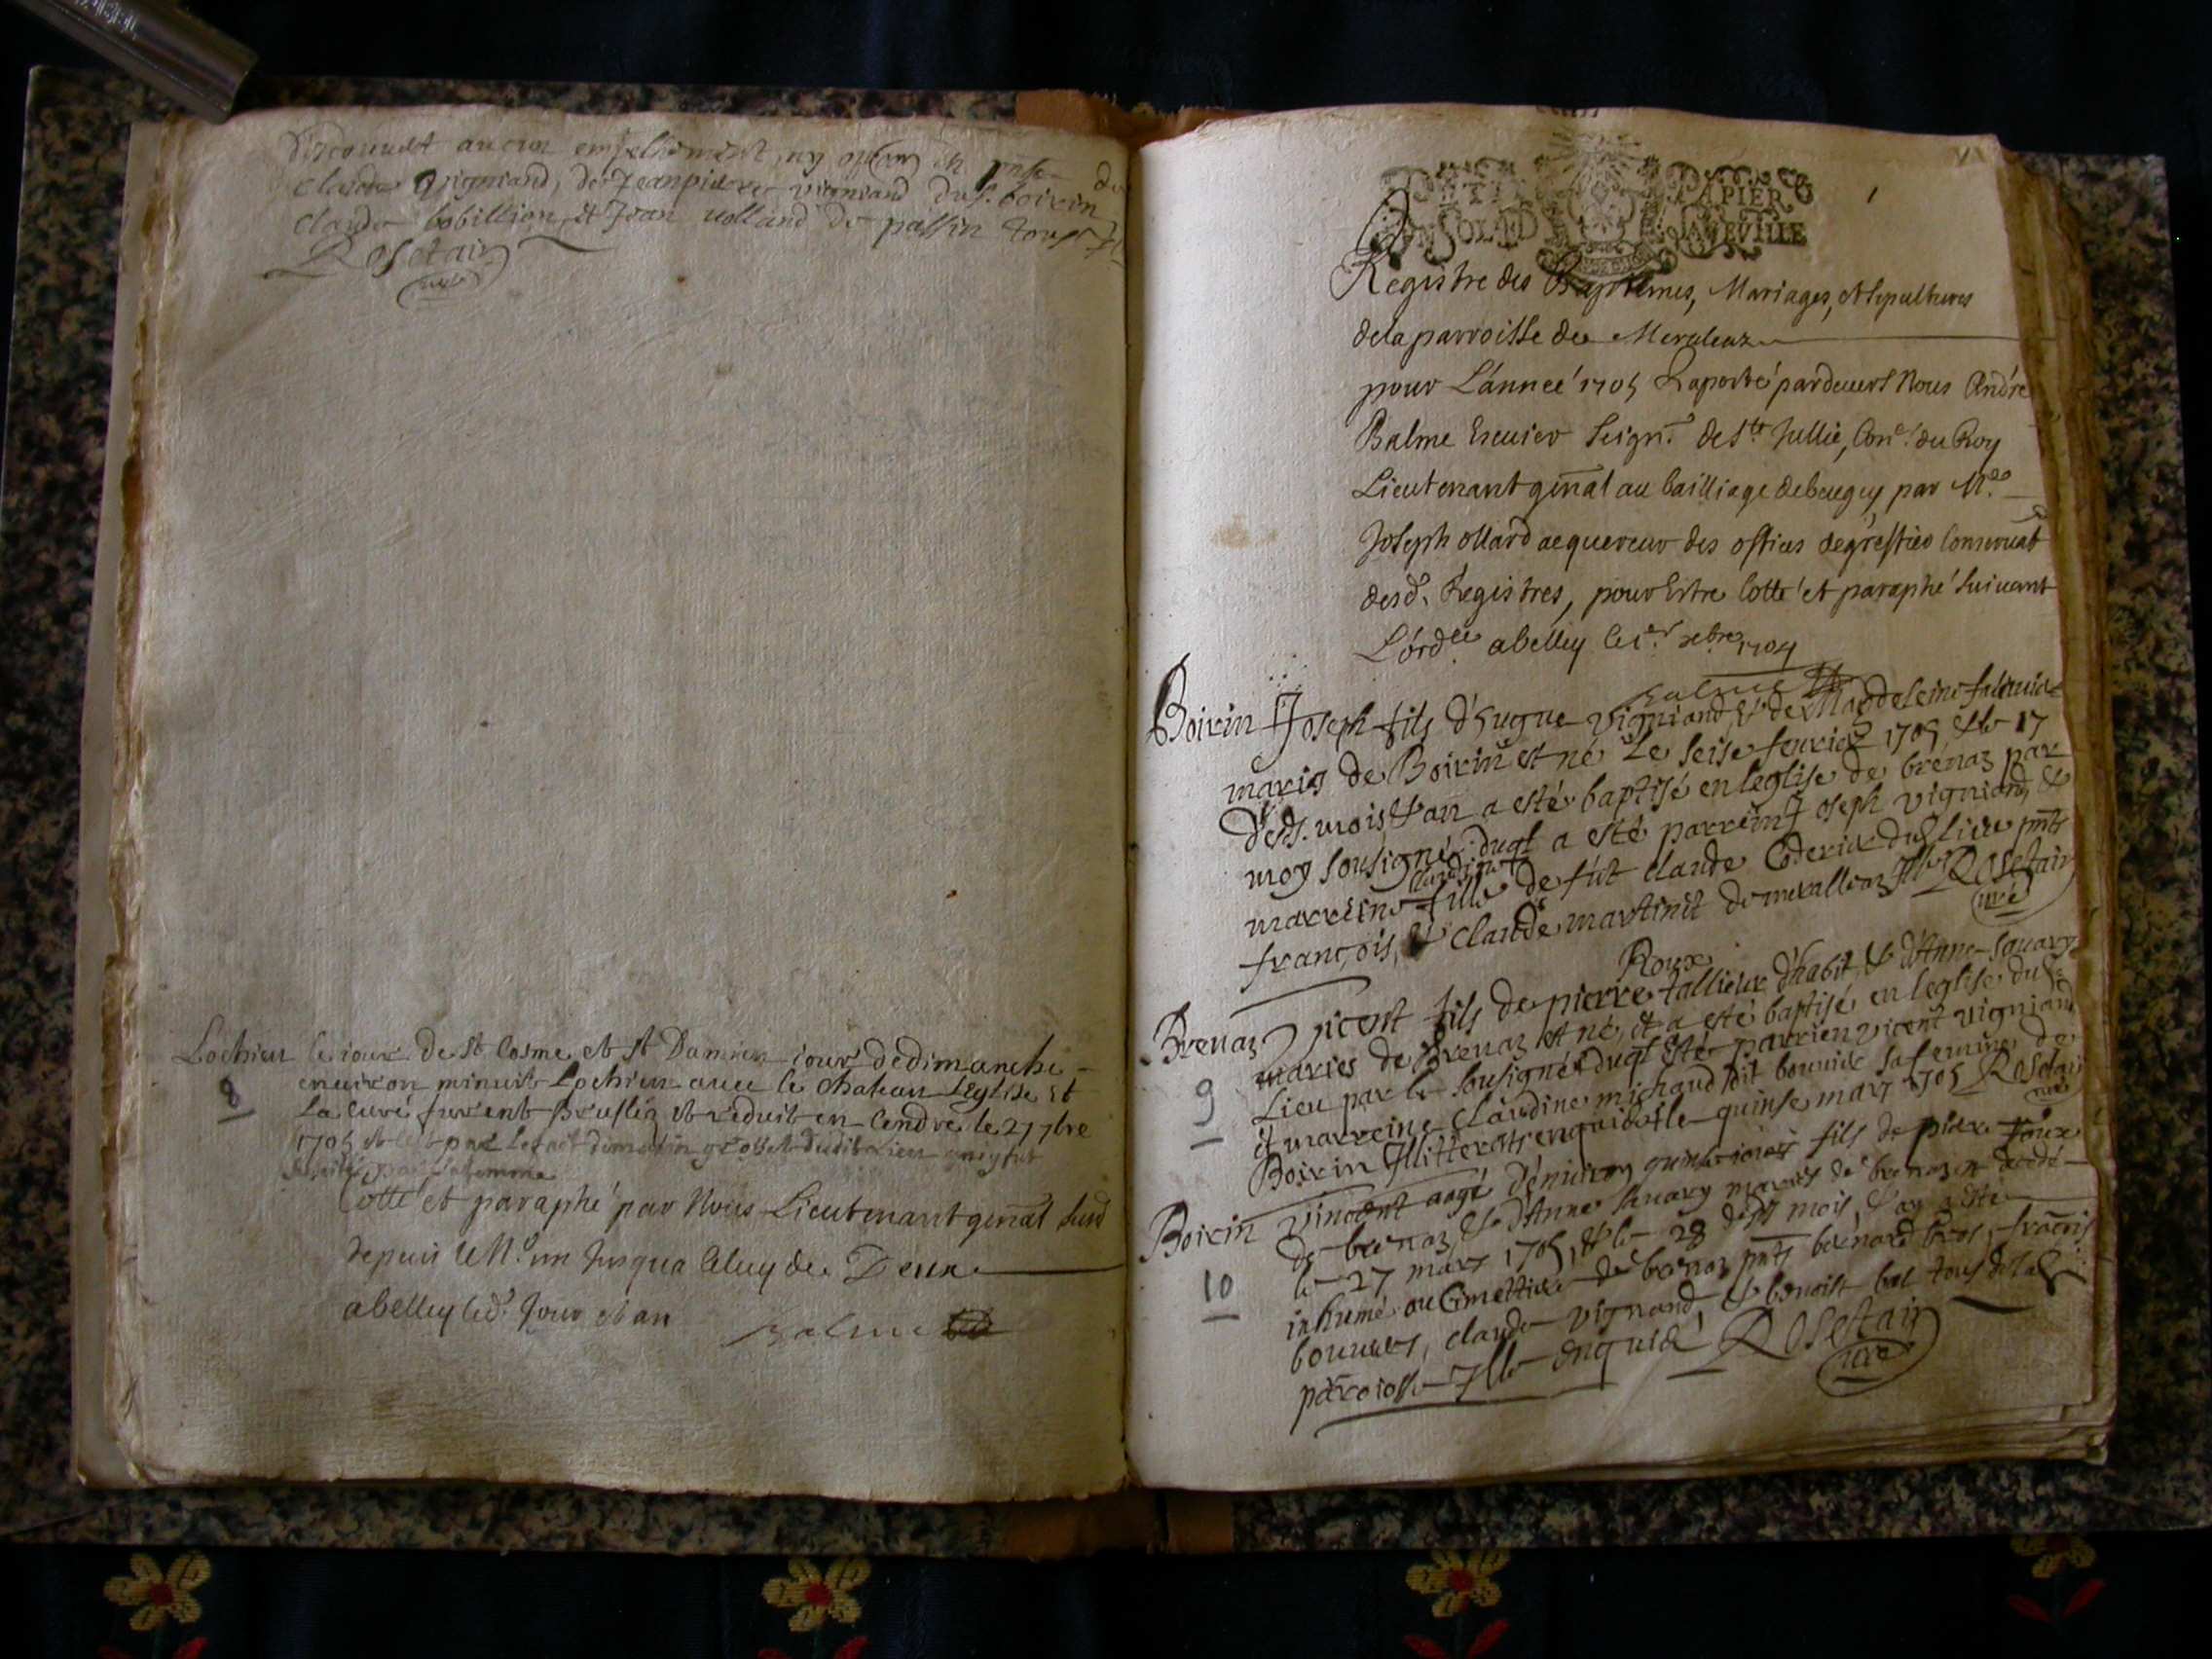 Descouuert aucun empeschement, ny opõn en pnse de
Claude Vigniand, de Jeanpierre vigniand dud. boirin
Claude bobillion, et Jean uolland de passin tous
Rosetain
curé
Lochieu le iour de St Cosme et st Damien iour dedimanche
8
enuiron minuit Lochieu auec le chateau LEglise et
La Curé furent Bruslez et reduit en Cendre le 27 7bre
1705
Cotté et paraphé par Nous Lieutenant gñal susd
depuis le No. un Jusqua Celuy de Deux
abelley led. Jour et an
Balme
1
PAPIER
Registre des Baptêmes, Mariages, et sepultures
dela parroisse de Meraleaz
pour L'année 1705 Raporté pardeuers Nous André
Balme Escuier Seignr. de Ste Jullie, Coner. du Roy
Lieutenant gñal au bailliage debeugey par Me
Joseph ollard acquereur des offices degreffier Conseruat
desd. Registres, pour Estre Cotté et paraphé suiuant
L'ordce abelley le 1er xbre 1704
Balme
Boirin Joseph fils d'hugue vigniand et de Magdeleine
mariés de Boirin est né Le seise feurier 1705 et le 17
desd. mois et an a esté baptisé en leglise de brenaz par
moy sousigné, duql a esté parrein Joseph vigniand, et
marreine Claudine fille de fut claude dud lieu pnts
françois, et Claude martinet de meralleaz Ille Rosetain
curé
Brenaz Vicent fils de pierre Roux tallieur d'habit et d'Anne Sauary
9
maries de Brenaz est né, et a esté baptisé en leglise dud
Lieu par le sousigné duql esté parrien vicent vigniand
et marreine Claudine michaud dit bouuier sa femme de
Boirin Illitterats enquis et le quinse mars 1705 Rosetain
curé
Boirin Vincent aagé d'enuiron quinse iours fils de pierre roux
10
de brenaz, et d'Anne Sauary mariés de brenaz est decedé
le 27 mars 1705, et le 28 desd mois, et an a esté
inhumé au Cimettiere de brenaz pnts bernard bros, francois
bouuier, claude vignand, et benoist bal tous de lad
parroisse Ille enquis Rosetain
curé